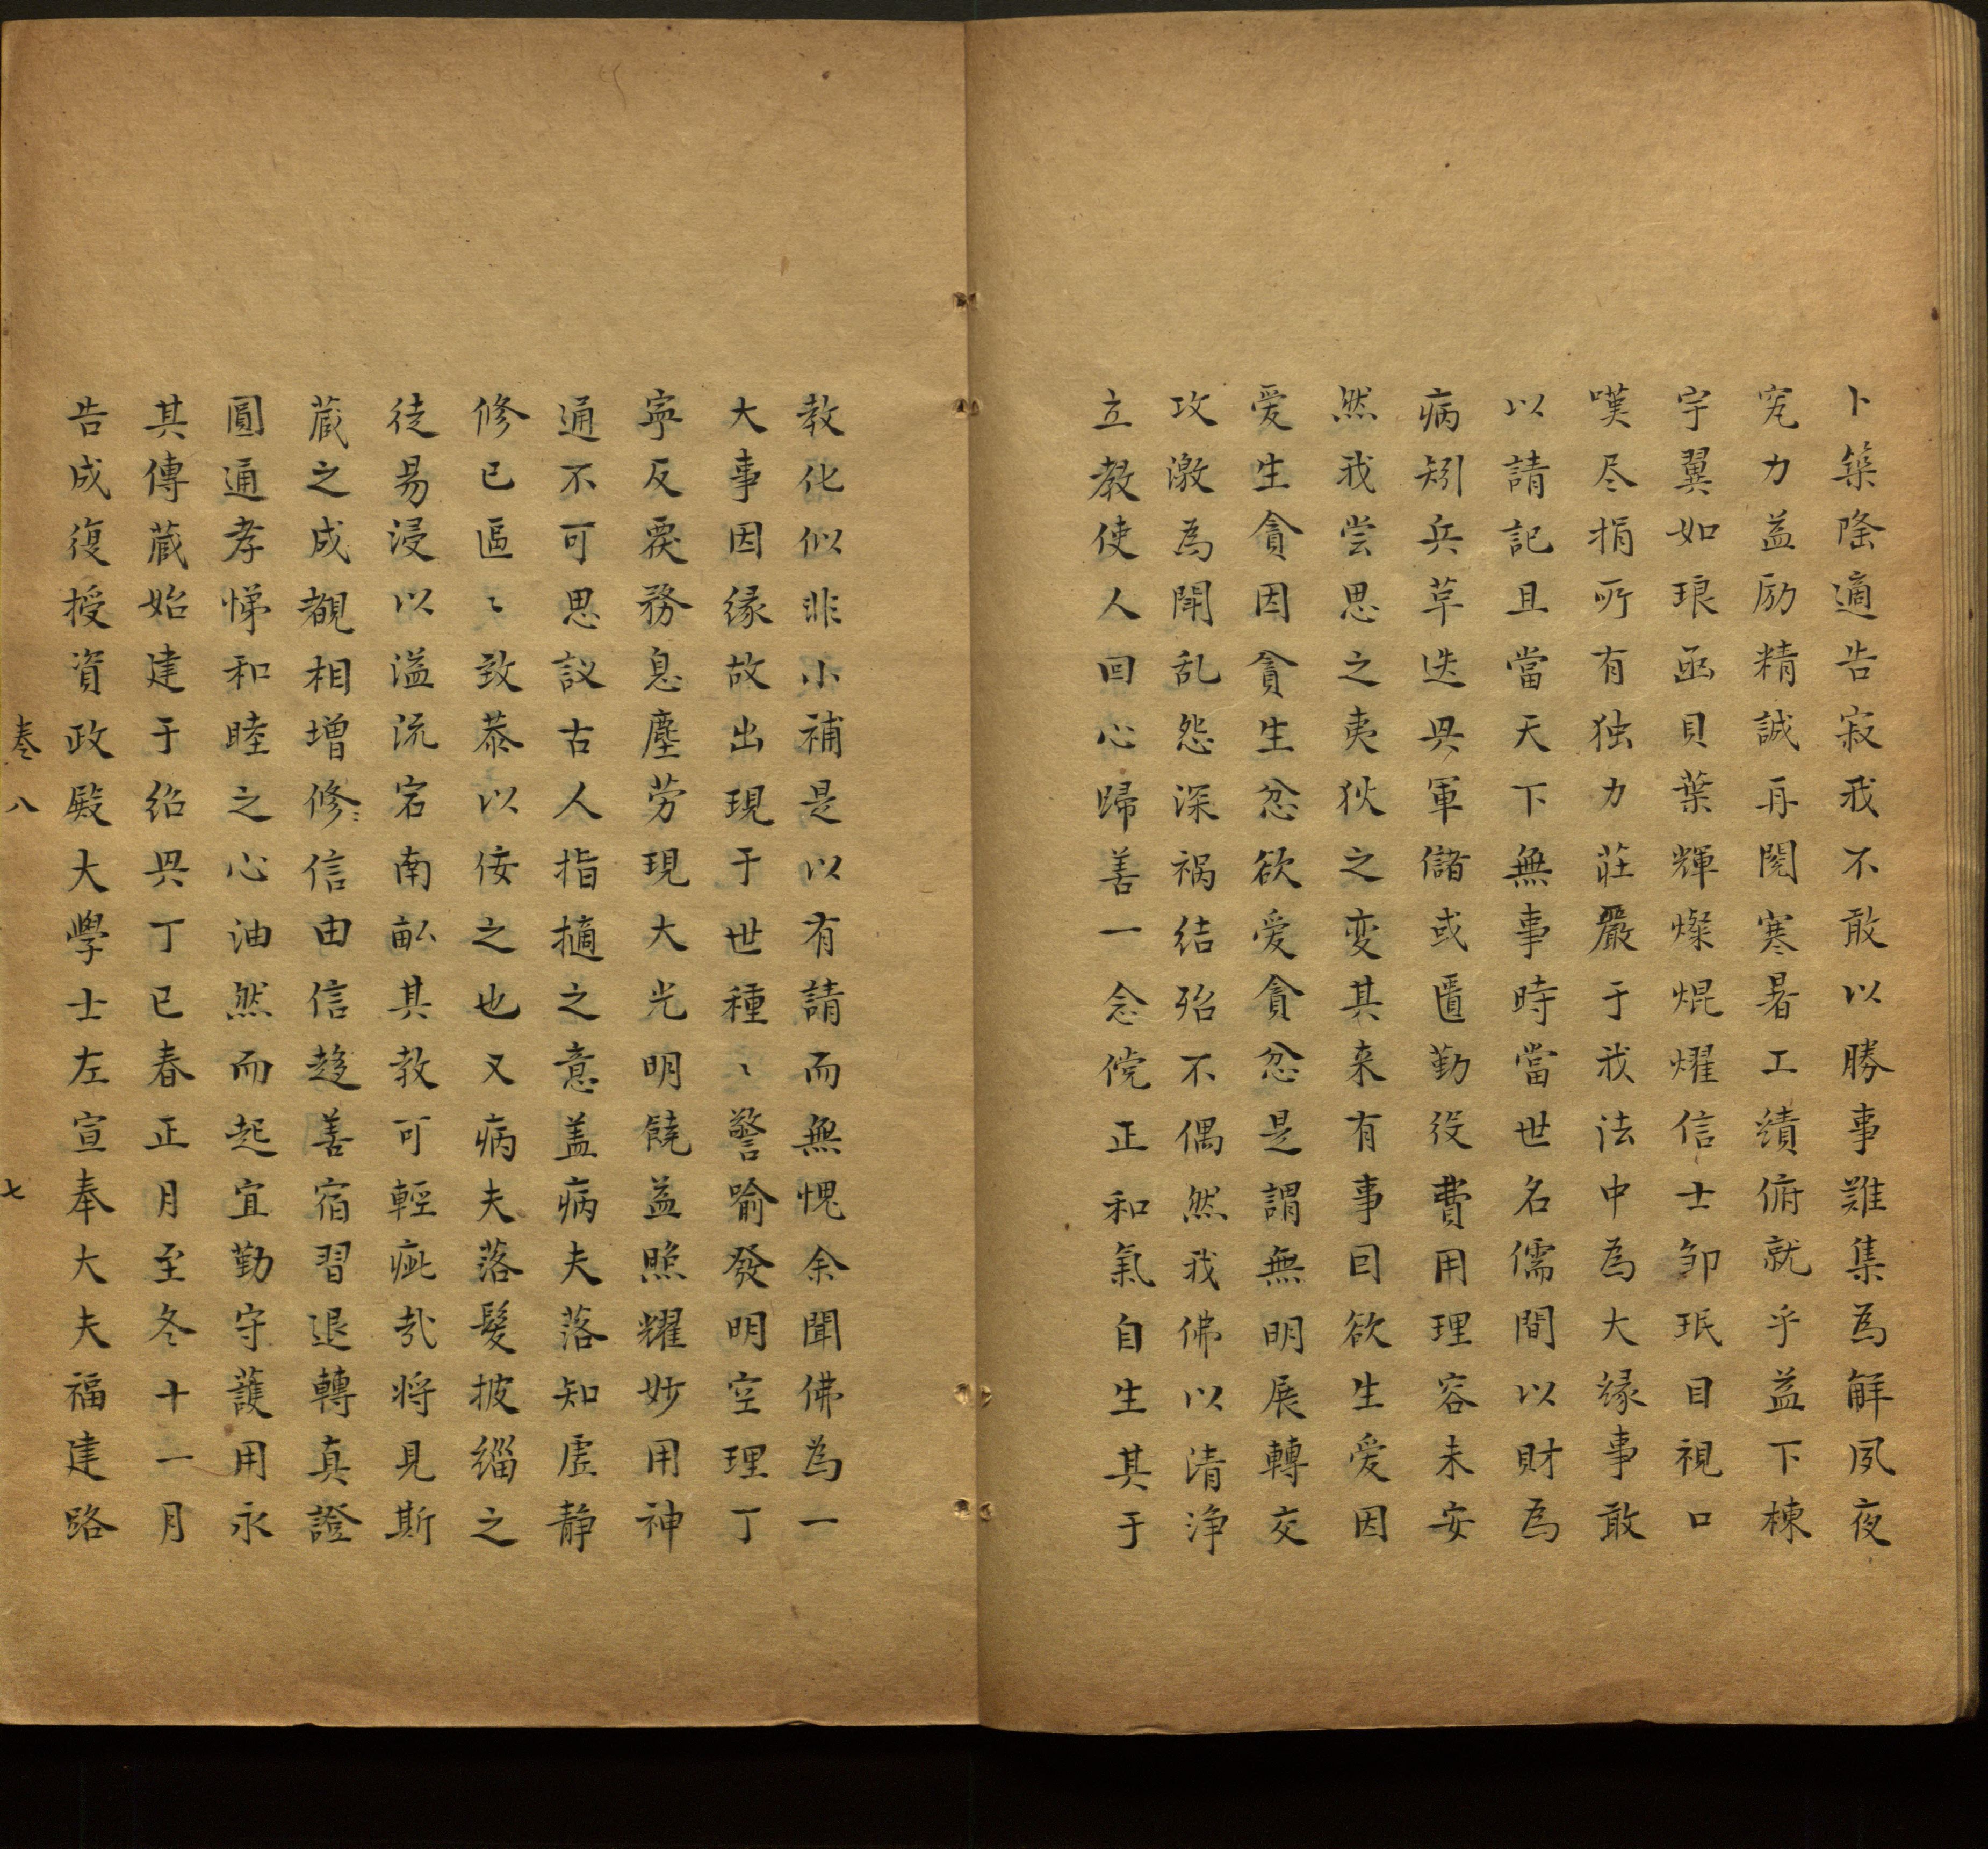 卜築隆適告寂我不敢以勝事難集為解夙夜
究力益励精誠再閱寒暑工績俯就乎益下棟
宇翼如琅函貝葉輝燦焜燿信士邹珉目視口
嘆尽捐所有独力莊嚴于我法中為大縁事敢
以請記且當天下無事時當世名儒間以財為
病矧兵草迭興軍儲或匱勤役費用理容未安
然我尝思之夷狄之变其来有事囙欲生爱因
爱生貪因貪生忿欲爱貪忿是謂無明展轉交
攻激為闘乱怨深祸结殆不偶然我佛以清浄
立教使人回心歸善一念傥正和氣自生其于
教化似非小補是以有請而無愧余聞佛為一
大事因缘故出現于世種〻警喻發明空理丁
寧反覆務息塵劳現大光明饒益照耀妙用神
通不可思議古人指擿之意盖病夫落知虚静
修已區〻致恭以佞之也又病夫落髮披緇之
徒易浸以溢流宕南畆其教可輕疵㢤将見斯
蔵之成覩相增修〻信由信趍善宿習退轉真證
圓通孝悌和睦之心油然而起宜勤守護用永
其傳蔵始建于绍興丁巳春正月至冬十一月
告成復授資政殿大學士左宣奉大夫福建路
卷八　七